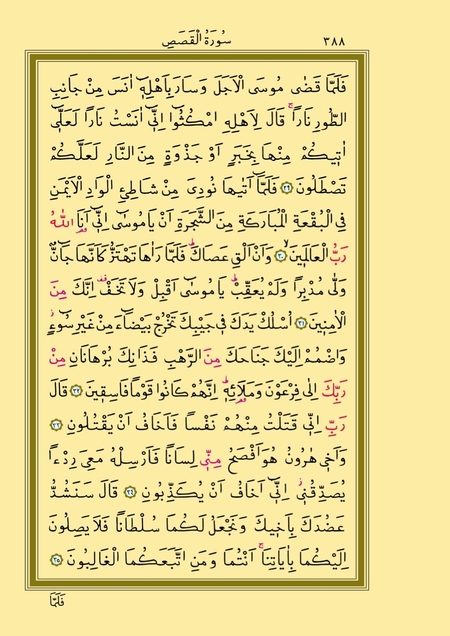 سُورَةُ الْقَصَصِ ٣٨٨
فَلَمَّا قَضٰى مُوسَى الْاَجَلَ وَسَارَ بِاَهْلِهٖٓ اٰنَسَ مِنْ جَانِبِ
الطُّورِ نَارًاۚ قَالَ لِاَهْلِهِ امْكُثُٓوا اِنّٖٓي اٰنَسْتُ نَارًا لَعَلّٖٓي
اٰتٖيكُمْ مِنْهَا بِخَبَرٍ اَوْ جَذْوَةٍ مِنَ النَّارِ لَعَلَّكُمْ
تَصْطَلُونَ ﴿٢٩﴾ فَلَمَّٓا اَتٰيهَا نُودِيَ مِنْ شَاطِئِ الْوَادِ الْاَيْمَنِ
فِي الْبُقْعَةِ الْمُبَارَكَةِ مِنَ الشَّجَرَةِ اَنْ يَامُوسٰٓى اِنّٖٓي اَنَا اللّٰهُ
رَبُّ الْعَالَمٖينَۙ ﴿٣٠﴾ وَاَنْ اَلْقِ عَصَاكَۜ فَلَمَّا رَاٰهَا تَهْتَزُّ كَاَنَّهَا جَٓانٌّ
وَلّٰى مُدْبِرًا وَلَمْ يُعَقِّبْۜ يَا مُوسٰٓى اَقْبِلْ وَلَا تَخَفْ۠ اِنَّكَ مِنَ
الْاٰمِنٖينَ ﴿٣١﴾ اُسْلُكْ يَدَكَ فٖي جَيْبِكَ تَخْرُجْ بَيْضَٓاءَ مِنْ غَيْرِ سُٓوءٍۘ
وَاضْمُمْ اِلَيْكَ جَنَاحَكَ مِنَ الرَّهْبِ فَذَانِكَ بُرْهَانَانِ مِنْ
رَبِّكَ اِلٰى فِرْعَوْنَ وَمَلَا۬ئِهٖۜ اِنَّهُمْ كَانُوا قَوْمًا فَاسِقٖينَ ﴿٣٢﴾ قَالَ
رَبِّ اِنّٖي قَتَلْتُ مِنْهُمْ نَفْسًا فَاَخَافُ اَنْ يَقْتُلُونِ ﴿٣٣﴾
وَاَخٖي هٰرُونُ هُوَ اَفْصَحُ مِنّٖي لِسَانًا فَاَرْسِلْهُ مَعِيَ رِدْءًا
يُصَدِّقُنٖيۘ اِنّٖٓي اَخَافُ اَنْ يُكَذِّبُونِ ﴿٣٤﴾ قَالَ سَنَشُدُّ
عَضُدَكَ بِاَخٖيكَ وَنَجْعَلُ لَكُمَا سُلْطَانًا فَلَا يَصِلُونَ
اِلَيْكُمَا بِاٰيَاتِنَاۚ اَنْتُمَا وَمَنِ اتَّبَعَكُمَا الْغَالِبُونَ ﴿٣٥﴾
فَلَمَّا